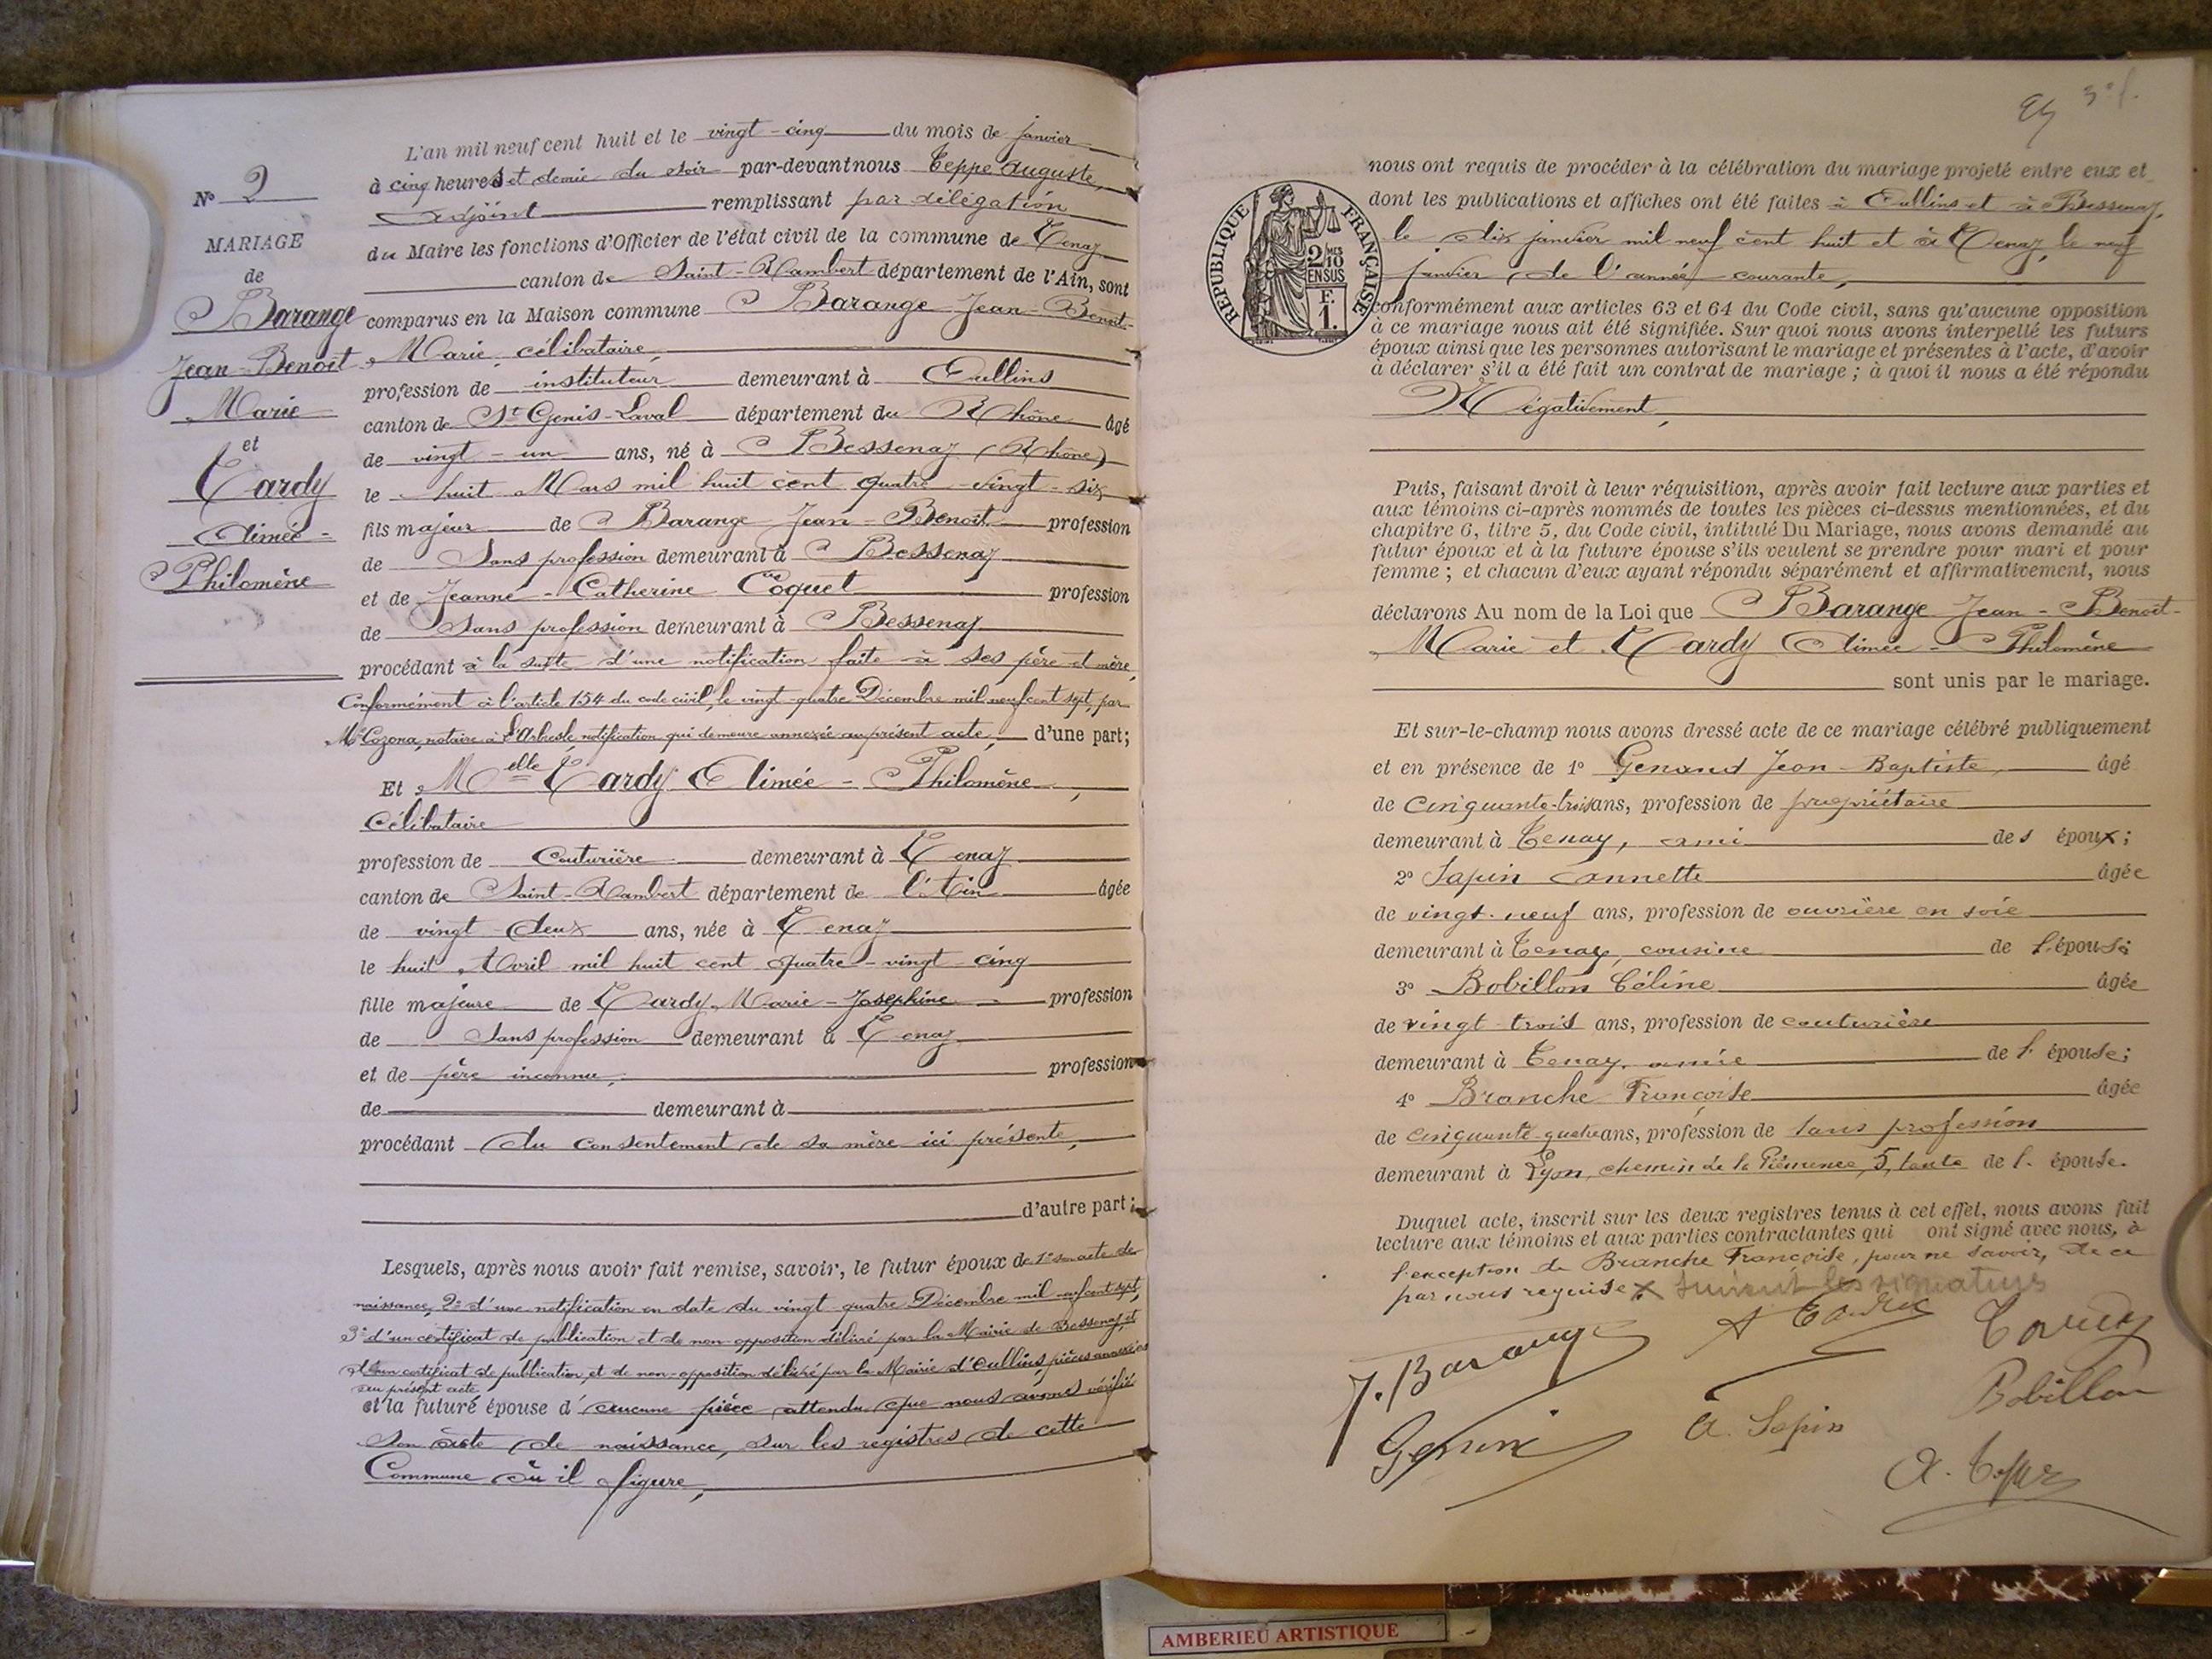 L'an mil neuf cent huit et le vingt-cinq du mois de janvier
à cinq heures et demie du soir par-devant nous Teppe Auguste,
Adjoint remplissant par délégation
du Maire les fonctions d'Officier de l'état civil de la commune de Tenay
canton de Saint-Rambert département de l'Ain, sont
comparus en la Maison commune Barange Jean-Benoit-
Marie, célibataire,
profession de instituteur demeurant à Oullins
canton de St Genis-Laval département du Rhône âgé
de vingt-un ans, né à Bessenay (Rhône)
le huit Mars mil huit cent quatre-vingt-six
fils majeur de Barange Jean-Benoit profession
de Sans profession demeurant à Bessenay
et de Jeanne-Catherine Coquet profession
de Sans profession demeurant à Bessenay
procédant à la suite d'une notification faite à ses père et mère,
Conformément à l'article 154 du code civil, le vingt-quatre Décembre mil neuf cent sept, par
Me Cozona, notaire à L'Arbresle, notification qui demeure annexée au présent acte, d'une part;
Et Melle Tardy Aimée-Philomène,
Célibataire
profession de Couturière demeurant à Tenay
canton de Saint-Rambert département de l'Ain âgée
de vingt-deux ans, née à Tenay
le huit Avril mil huit cent quatre-vingt-cinq
fille majeure de Tardy Marie-Josephine profession
de Sans profession demeurant à Tenay
et de père inconnu, profession
de demeurant à
procédant du consentement de sa mère ici présente,
d'autre part;
Lesquels, après nous avoir fait remise, savoir, le futur époux de 1° son acte de
naissance, 2° d'une notification en date du vingt-quatre Décembre mil neuf cent sept,
3° d'un certificat de publication et de non-opposition délivré par la Mairie de Bessenay, et
d'un certificat de publication et de non-opposition délivré par la Mairie d'Oullins, pièces annexées
au présent acte
et la future épouse d'aucune pièce attendu que nous avons vérifié
son acte de naissance, sur les registres de cette
Commune où il figure,
N° 2
MARIAGE
de
Barange
Jean-Benoit
Marie
et
Tardy
Aimée-
Philomène
3e f.
RÉPUBLIQUE FRANÇAISE
2/10 EN SUS
F. 1.
nous ont requis de procéder à la célébration du mariage projeté entre eux et
dont les publications et affiches ont été faites à Oullins et à Bessenay,
le dix janvier mil neuf cent huit et à Tenay, le neuf
janvier de l'année courante,
conformément aux articles 63 et 64 du Code civil, sans qu'aucune opposition
à ce mariage nous ait été signifiée. Sur quoi nous avons interpellé les futurs
époux ainsi que les personnes autorisant le mariage et présentes à l'acte, d'avoir
à déclarer s'il a été fait un contrat de mariage ; à quoi il nous a été répondu
Négativement,
Puis, faisant droit à leur réquisition, après avoir fait lecture aux parties et
aux témoins ci-après nommés de toutes les pièces ci-dessus mentionnées, et du
chapitre 6, titre 5, du Code civil, intitulé Du Mariage, nous avons demandé au
futur époux et à la future épouse s'ils veulent se prendre pour mari et pour
femme ; et chacun d'eux ayant répondu séparément et affirmativement, nous
déclarons Au nom de la Loi que Barange Jean-Benoit-
Marie et Tardy Aimée-Philomène
sont unis par le mariage.
Et sur-le-champ nous avons dressé acte de ce mariage célébré publiquement
et en présence de 1° Jean-Baptiste, âgé
de cinquante-trois ans, profession de propriétaire
demeurant à Tenay, ami des époux;
2° Sapin Annette âgée
de vingt-neuf ans, profession de ouvrière en soie
demeurant à Tenay, cousine de l'épouse;
3° Bobillon Céline âgée
de vingt-trois ans, profession de couturière
demeurant à Tenay, amie de l'épouse;
4° Branche Françoise âgée
de cinquante-quatre ans, profession de sans profession
demeurant à Lyon, chemin de la 5, tante de l'épouse.
Duquel acte, inscrit sur les deux registres tenus à cet effet, nous avons fait
lecture aux témoins et aux parties contractantes qui ont signé avec nous, à
l'exception de Branche Françoise, pour ne savoir, de ce
par nous requise. suivent les signatures
J. Barange A Tardy Tardy
Bobillon
A. Sapin
A. Teppe
AMBERIEU ARTISTIQUE